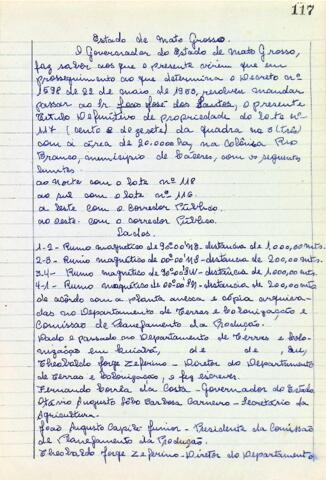 117
Estado de Mato Grosso.
O Governador do Estado de Mato Grosso,
faz saber aos que o presente virem que em
prosseguimento ao que determina o Decreto nº
1598 de 22 de maio, de 1953, resolveu mandar
passar ao Sr. José dos Santos, o presente
Título Definitivo de propriedade do lote nº
117 (cento e dezesete) da quadra nº 3 (três)
com a área de 20.000 ha, na Colônia Rio
Branco, município de Cáceres, com os seguintes
limites.
ao Norte com o lote nº 118
ao sul com o lote nº 116
a Leste com o corredor Público.
ao oeste com o corredor Público.
Lados.
1-2- Rumo magnético de 90°00'NE- distância de 1.000,00 mts.
2-3- Rumo magnético de 00°00'SE- distância de 200,00 mts.
3-4- Rumo magnético de 90°00'SW- distância de 1.000,00 mts.
4-1- Rumo magnético de 00°00'NW- distância de 200,00 mts
de acôrdo com a planta anexa e cópia arquiva-
das no Departamento de Terras e Colonização e
Comissão de Planejamento da Produção.
Dado e passado no Departamento de Terras e Colo-
nização em Cuiabá, de de , Eu,
Theobaldo Jorge Zeferino - Diretor do Departamento
de Terras e Colonização, o fez escrever.
Fernando Corrêa da Costa - Governador do Estado
Otávio Augusto Lôbo Barbosa Carneiro - Secretário da
Agricultura.
João Augusto Júnior - Presidente da Comissão
de Planejamento da Produção.
Theobaldo Jorge Zeferino - Diretor do Departamento,